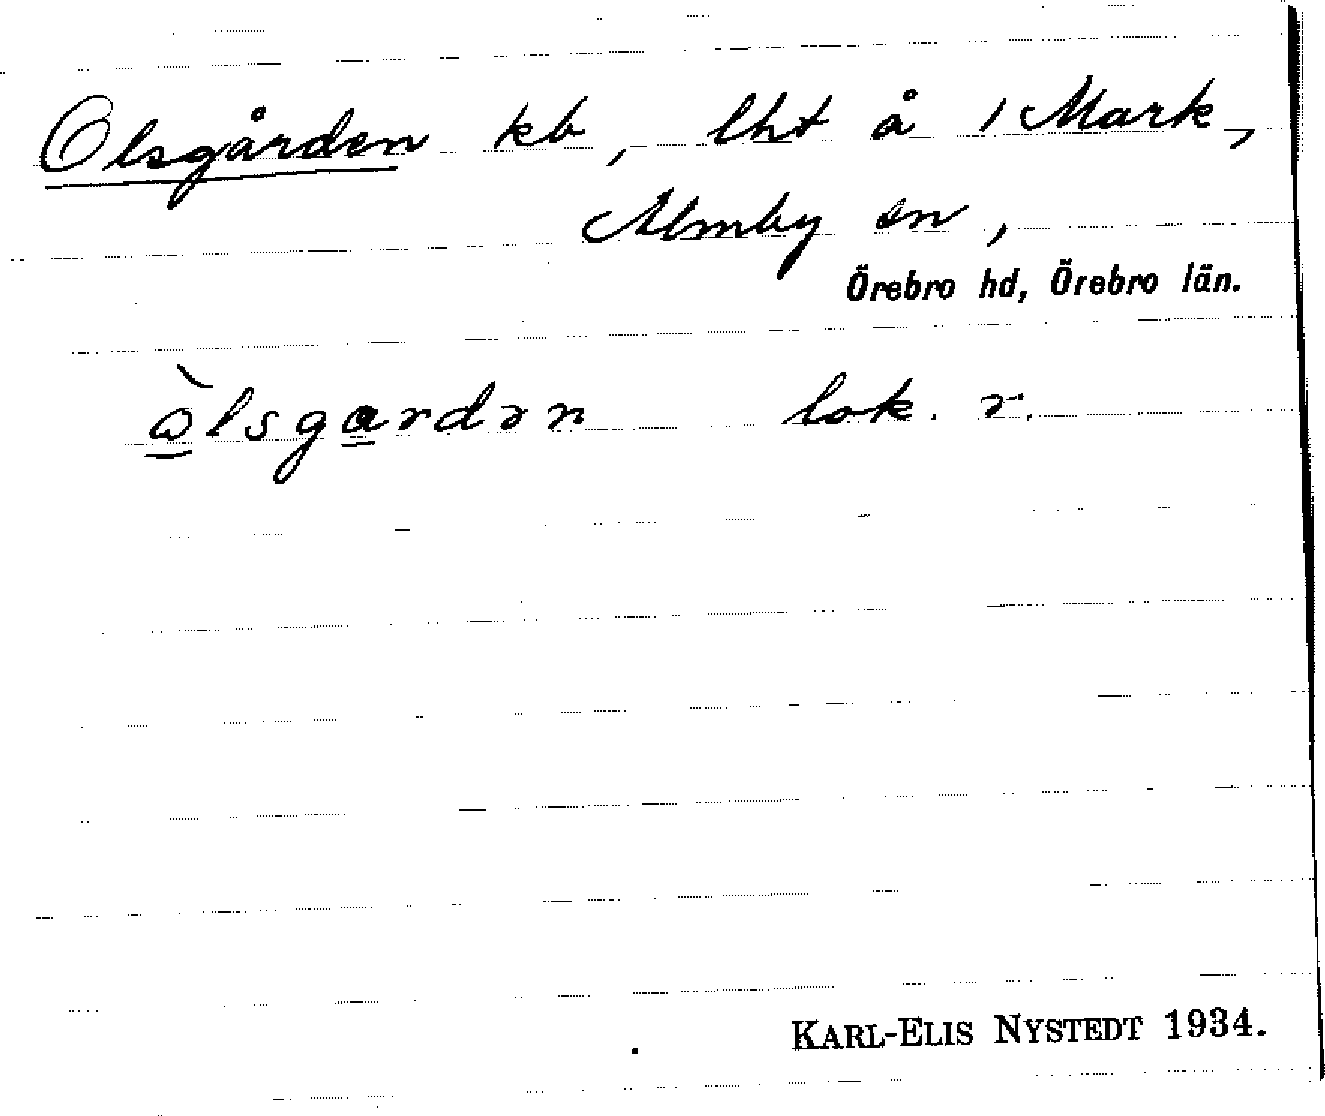 Olsgården kb, lht å 1 Mark,
Almby sn,
Örebro hd, Örebro län.
òlsgardən lok. r.
KARL-ELIS NYSTEDT 1934.